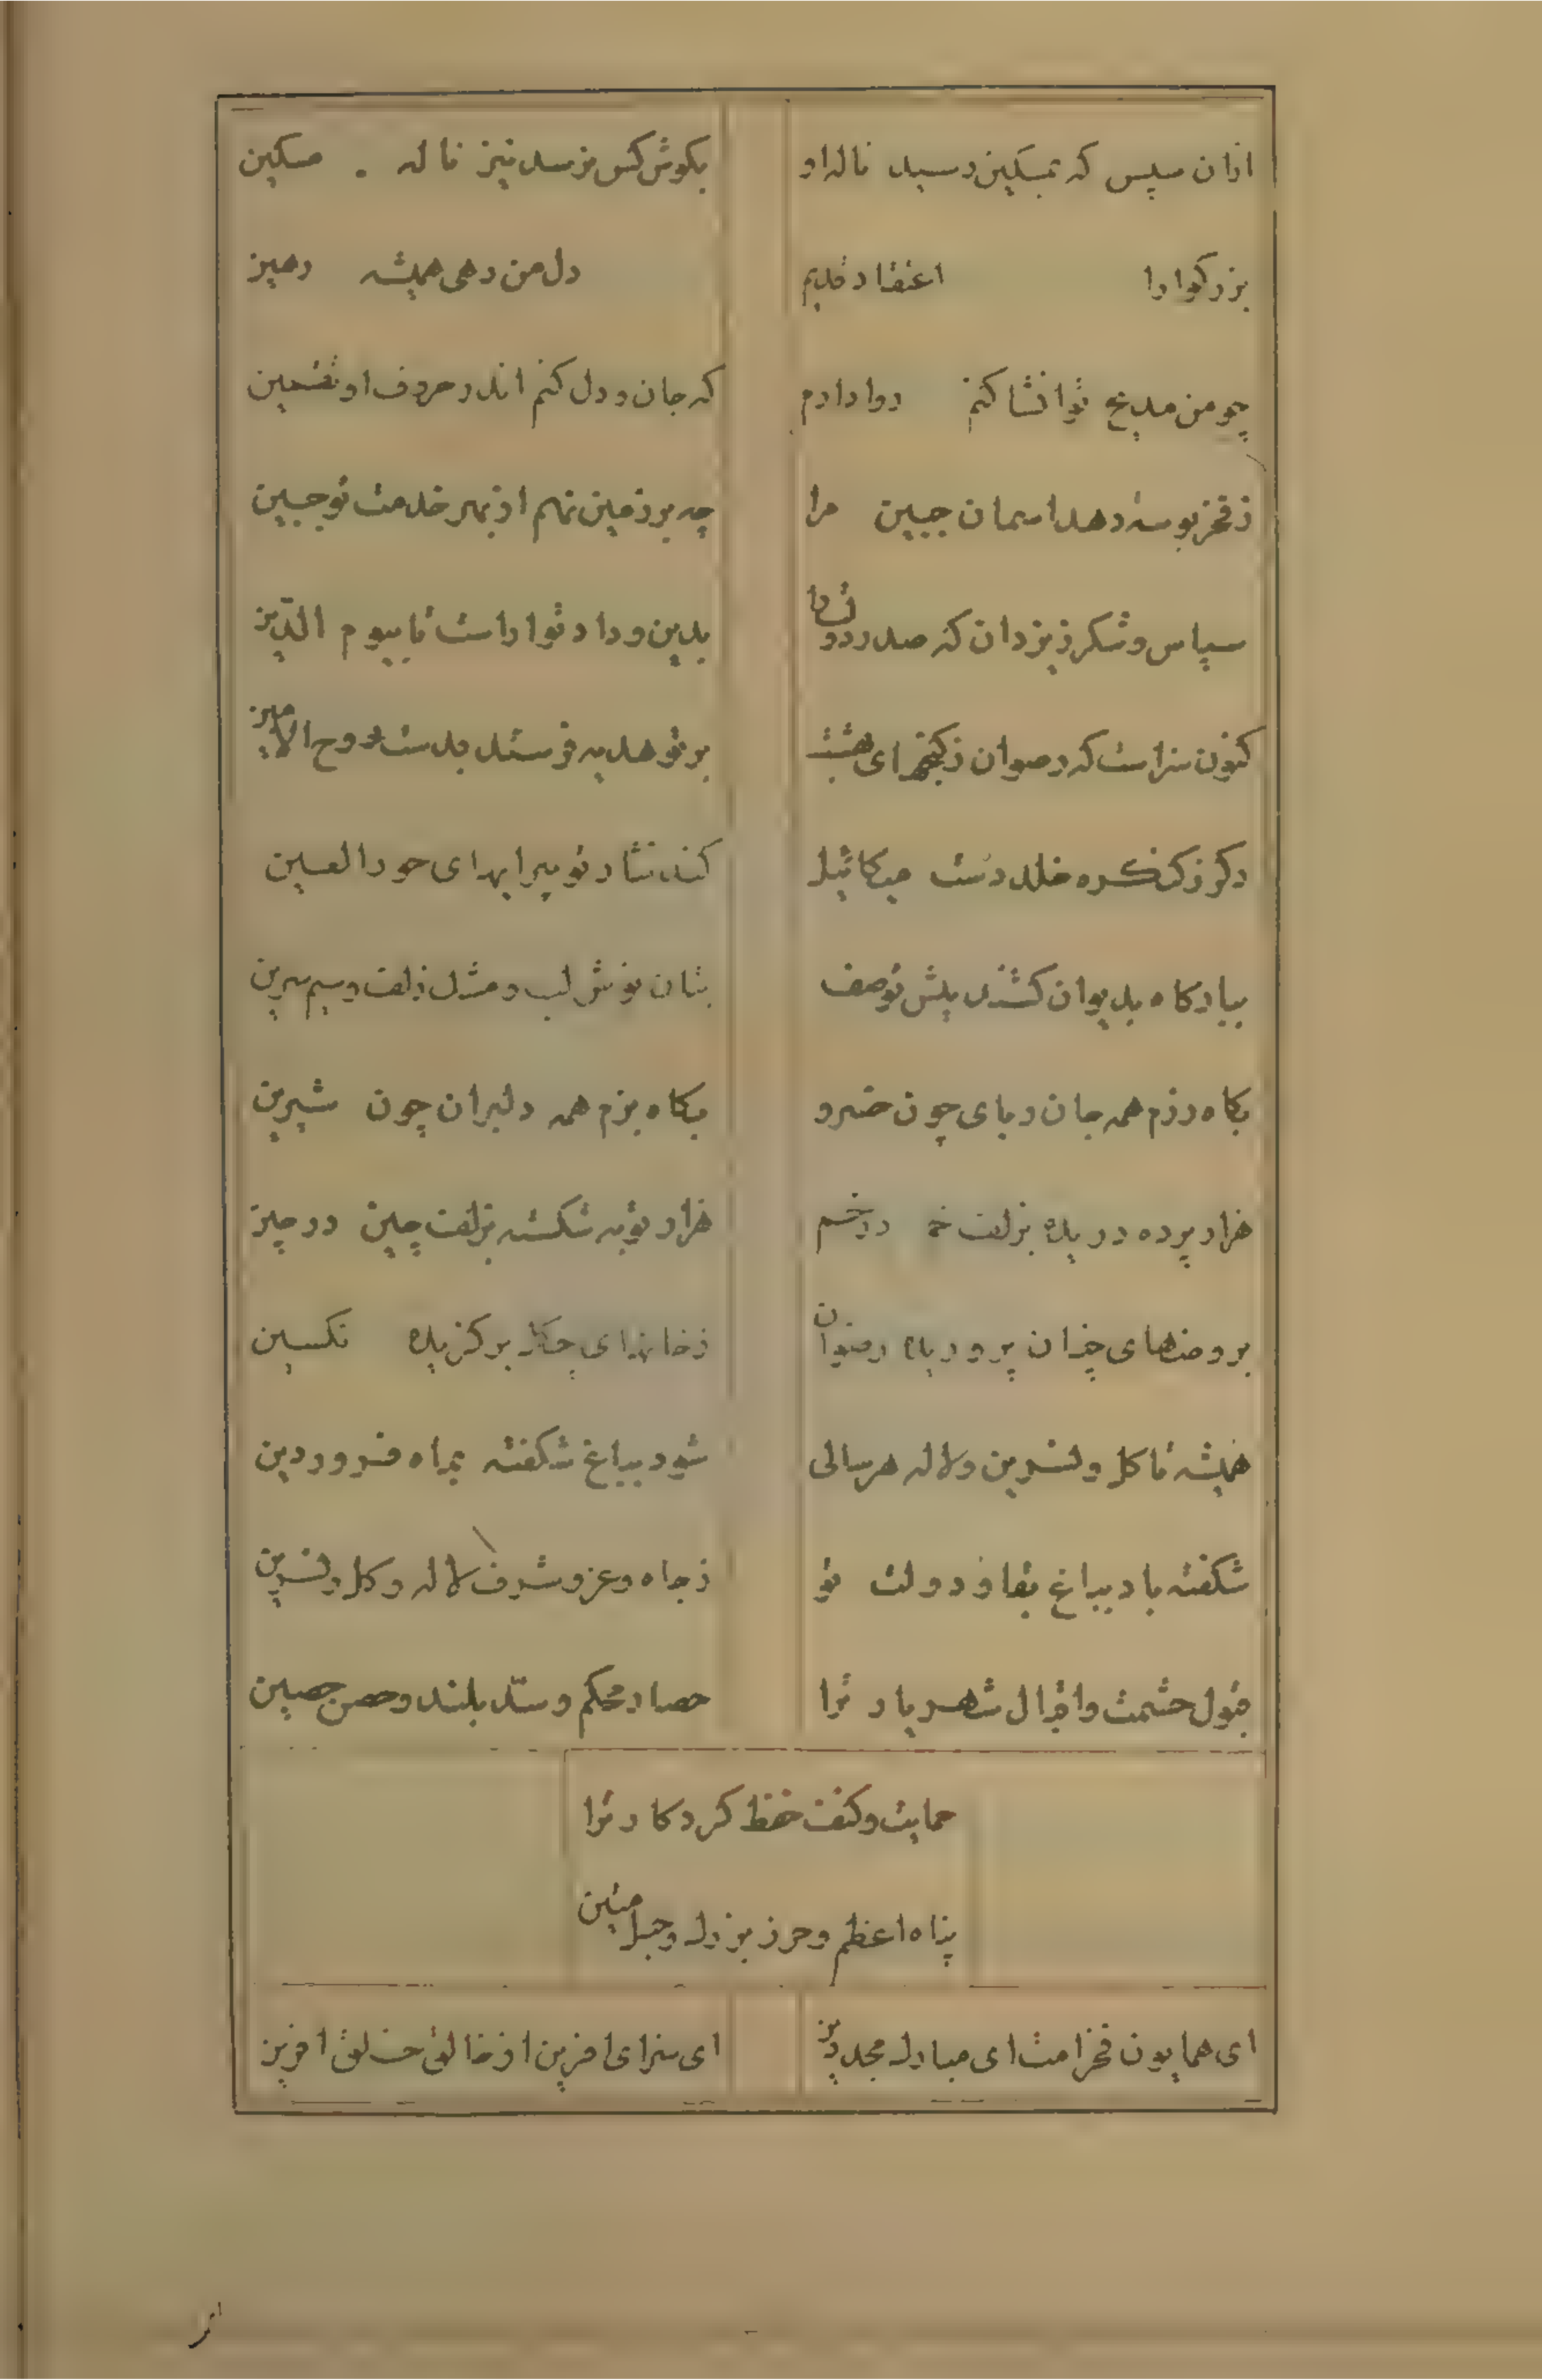 ازان سپس که بمسکین رسید ناله او
بکوش کس نرسد نیز ناله مسکین
بزرکوارا اعتقاد قدیم
دل من رهی همیشه رهین
چو من مدیح تو انشا کنم روا دارم
که جان و دل کنم اندر حروف او تضمین
ز فخر بوسه دهد اسمان جبین مرا
چه بر زمین نهم از بهر خدمت تو جبین
سپاس و شکر ز یزدان که صدر
بدین و داد تو اراست تا بیوم الدّین
کنون سزاست که رضوان ز کنجهای بهشت
بر تو هدیه فرستد بدست روح الامین
دکر ز کنکره خلد دست میکائیل
کند نثار تو پیرایهای حور العین
ببارکاه بدیوان کشند پیش تو صف
بتان نوش لب و مشک زلف و سیم سرین
بکاه رزم همه جان ربای چون خسرو
بکاه بزم همه دلبران چون شیرین
هزار پرده دریده بزلف خم در خم
هزار توبه شکسته بزلف چین در چین
بروضهای جنان پروریده رضوان
ز خانهای چکل برکزیده تکسین
همیشه تا کل و نسرین و لاله هر سالی
شود بباغ شکفته بماه فروردین
شکفته باد بباغ بقا و دولت تو
ز جاه و عز و شرف لاله و کل و نسرین
قبول حشمت و اقبال شهریار ترا
حصار محکم و سدّ بلند و حصن حصین
حمایت و کنف حفظ کردکار ترا
پناه اعظم و حرز بزرک و حبل متین
ای همایون فخر امت ای مبارک مجد دین
ای سزای افرین از خالق خلق افرین